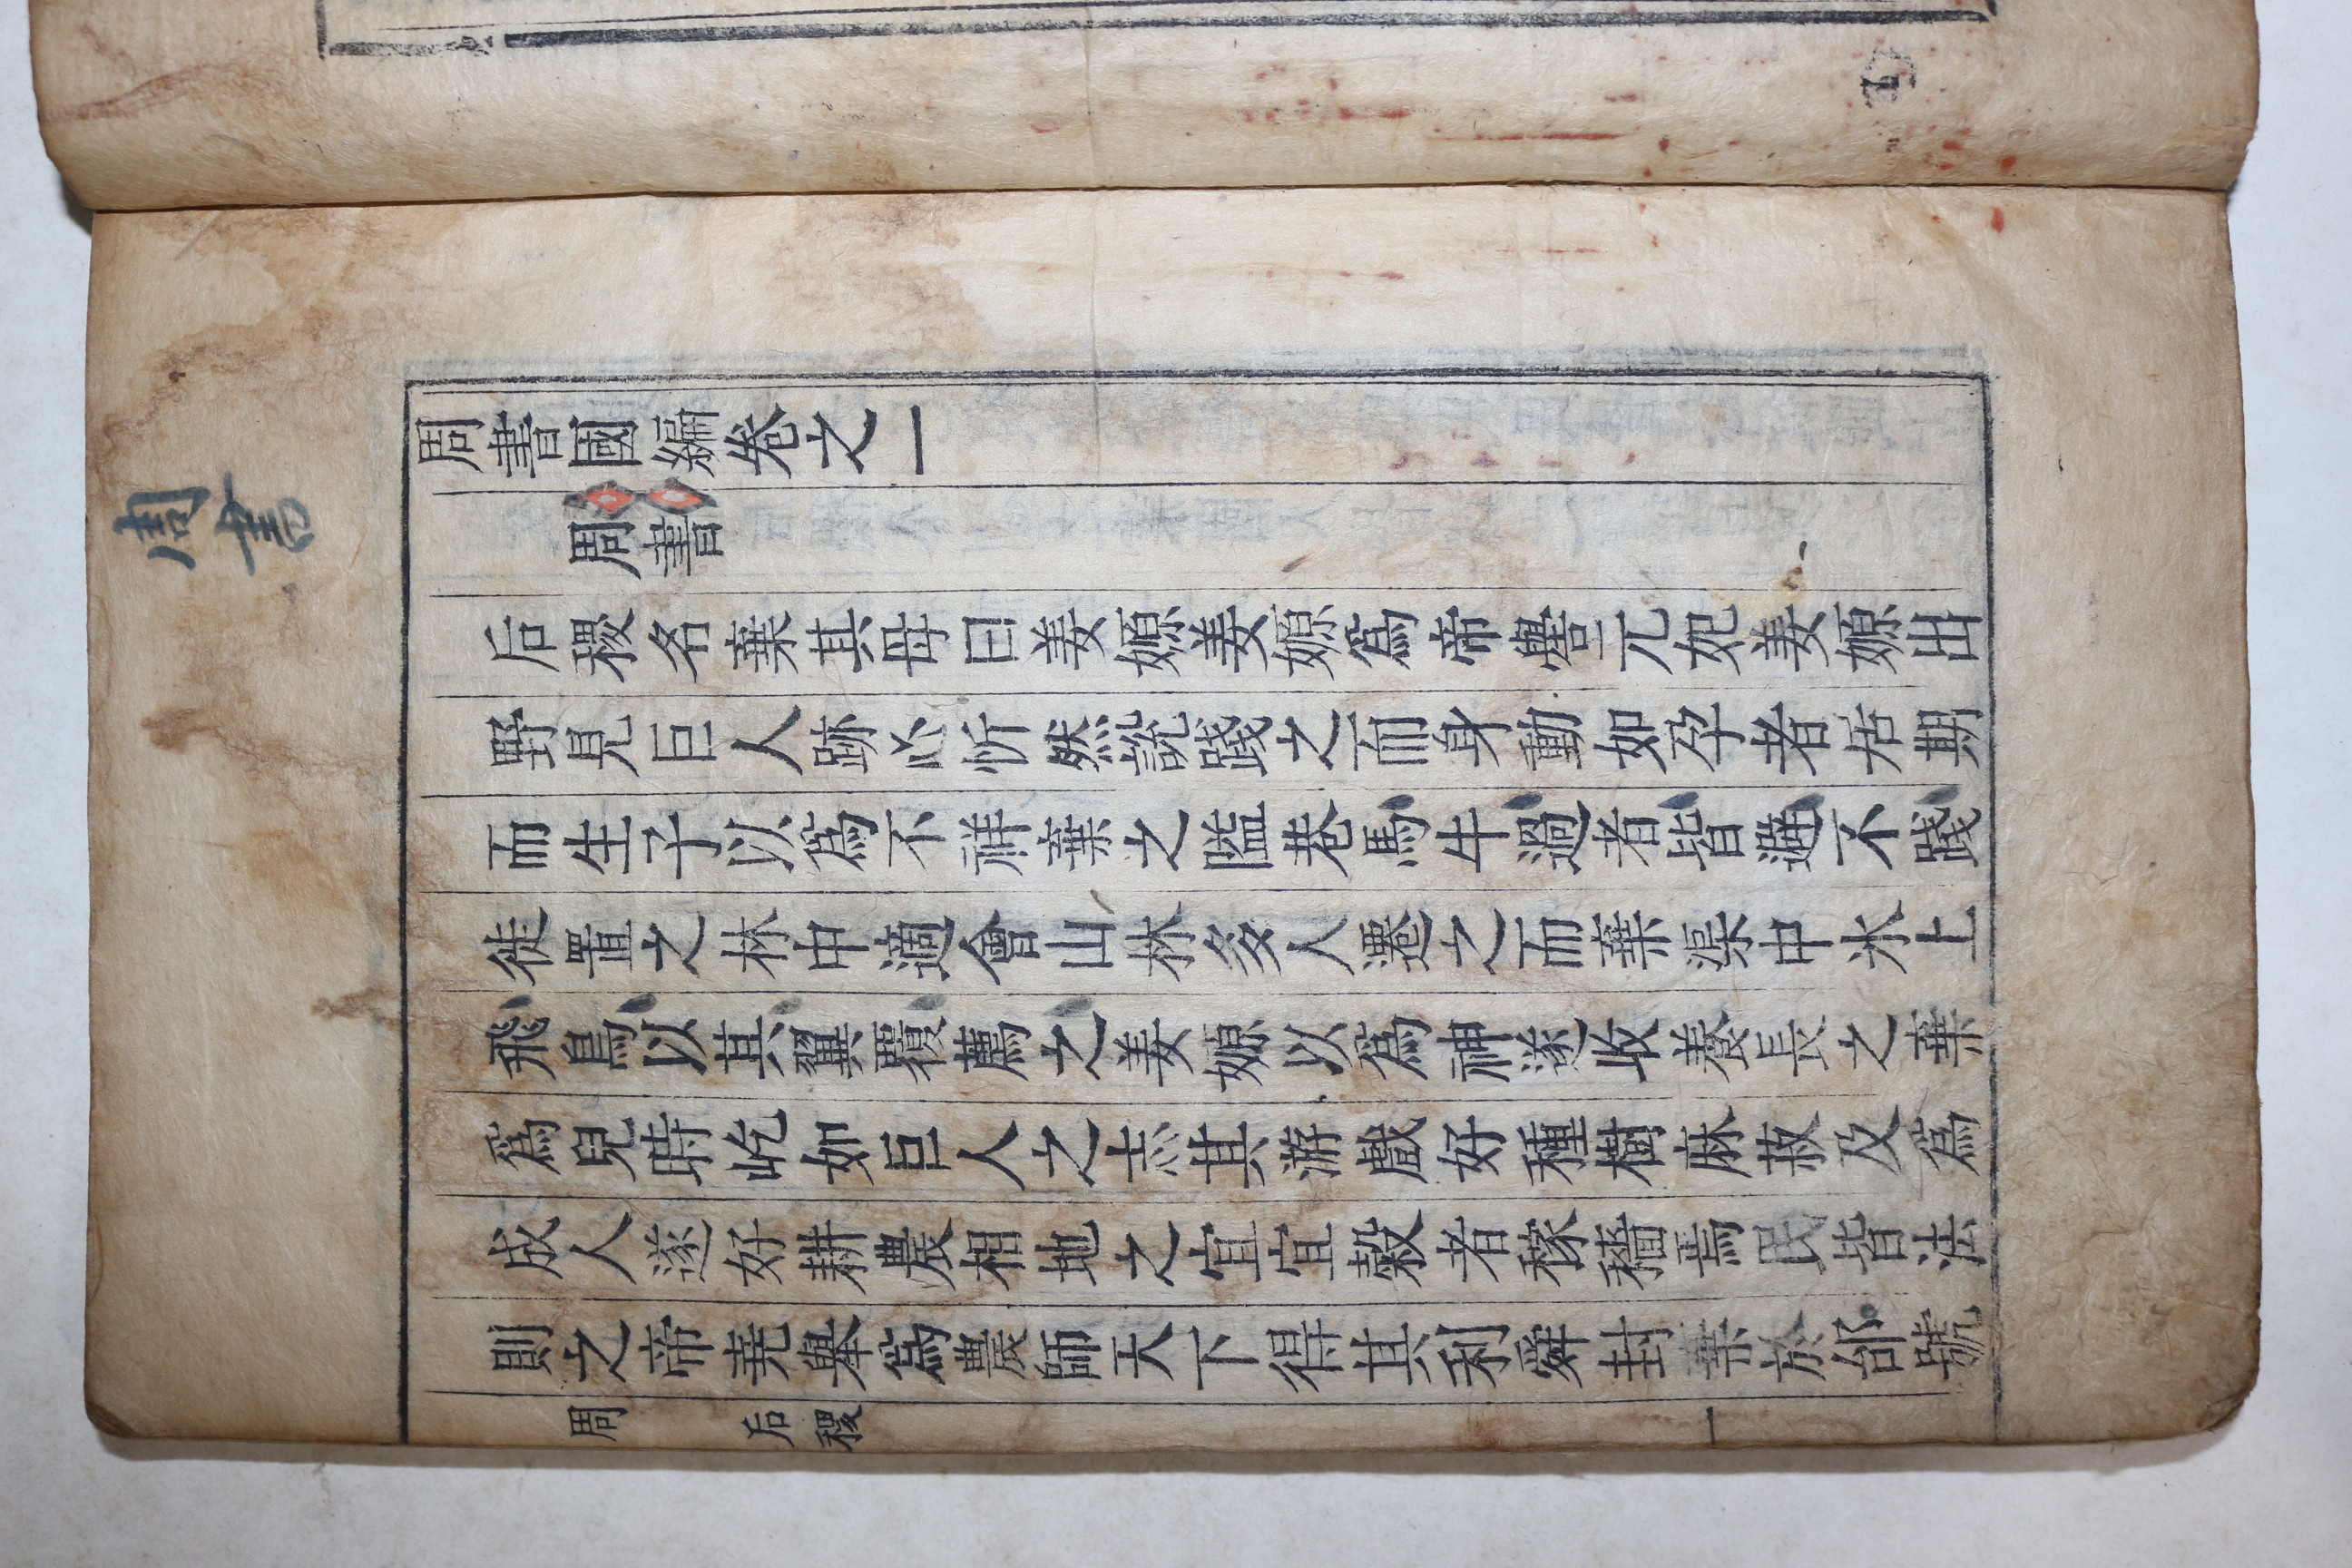 周書
周書國編卷之一
周書
后稷名棄其母曰姜嫄姜嫄爲帝嚳元妃姜嫄出
野見巨人跡心忻然說踐之而身動如孕者居期
而生子以爲不祥棄之隘巷馬牛過者皆避不踐
徙置之林中適會山林多人遷之而棄渠中氷上
飛鳥以其翼覆薦之姜嫄以爲神遂收養長之棄
爲兒時屹如巨人之志其游戲好種樹麻菽及爲
成人遂好耕農相地之宜宜穀者稼穡焉民皆法
則之帝堯擧爲農師天下得其利舜封棄於邰號
周 后稷 一